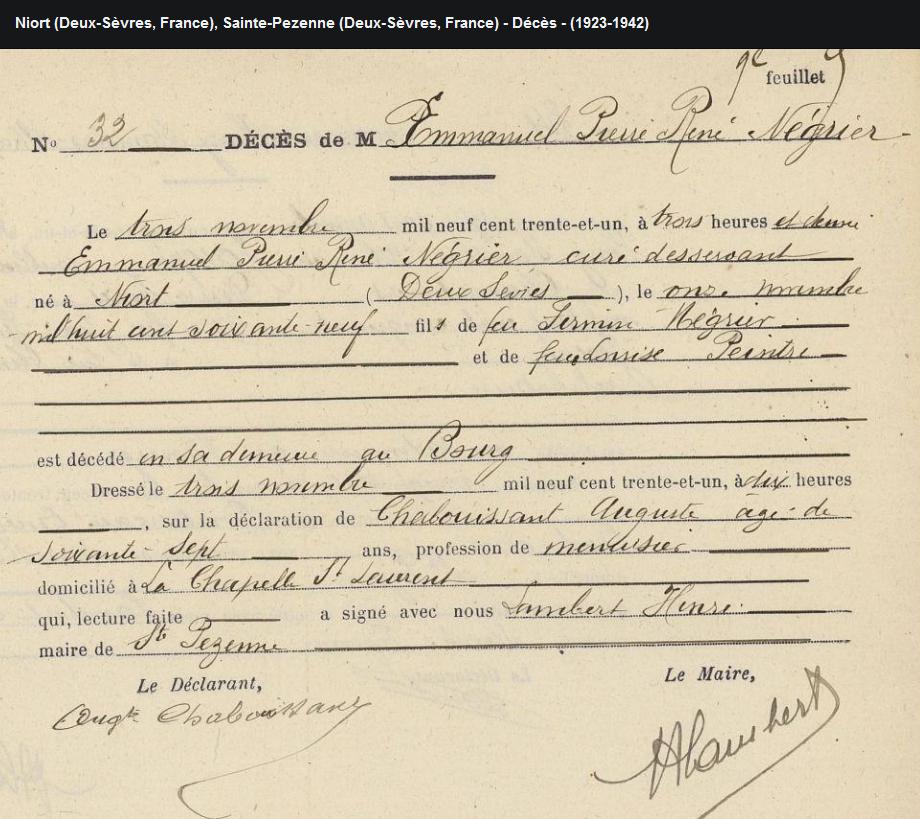 Niort (Deux-Sèvres, France), Sainte-Pezenne (Deux-Sèvres, France) - Décès - (1923-1942)
9e feuillet
No 32 DÉCÈS de M Emmanuel Pierre René Négrier
Le trois novembre mil neuf cent trente-et-un, à trois heures et demi
Emmanuel Pierre René Négrier curé desservant
né à Niort (Deux Sèvres), le onze novembre
mil huit cent soixante neuf fils de feu Firmin Négrier
et de feue Louise Peintre
est décédé en sa demeure au Bourg
Dressé le trois novembre mil neuf cent trente-et-un, à dix heures
, sur la déclaration de Chabouissant Auguste âgé de
soixante-sept ans, profession de menuisier
domicilié à La Chapelle St Laurent
qui, lecture faite a signé avec nous Lambert Henri
maire de Ste Pezenne
Le Déclarant, Le Maire,
Augte Chabouissant
HLambert